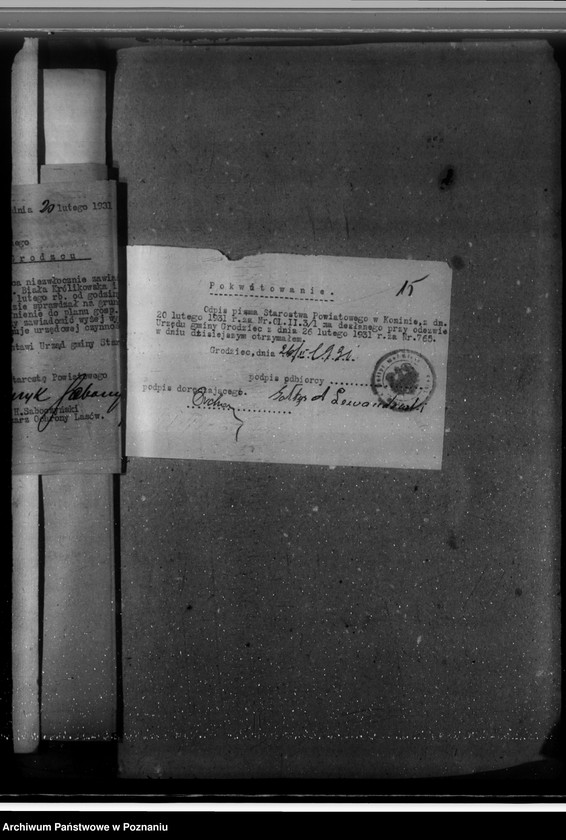 dnia 20 lutego 1931
ego
Grodzcu
niezwłocznie zawia
Biała Królikowska i
lutego rb. od godzin
sprawdzał na grun
mienie do planu gosp.
y zawiadomić wyżej wy
uje urzędowej czynno
stawi Urząd gminy Star
Starostę Powiatowego
H.Saboczyński
arz Ochrony Lasów.
15
Pokwitowanie.
Odpis pisma Starostwa Powiatowego w Koninie,z dn.
20 lutego 1931 r.za Nr.Cl.II.3/1 za deszłano przy odezwie
Urzędu gminy Grodziec z dnia 26 lutego 1931 r.za Nr.765.
w dniu dzisiejszym otrzymałem.
Grodziec,dnia 26/II 1931.
podpis odbiorcy
podpis doręczającego.
Sołtys A Lewandowski
Archiwum Państwowe w Poznaniu